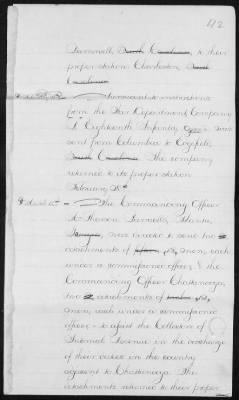 42
Barnwell, South Carolina, to their
proper station Charleston, South
Carolina
Pursuant to instructions
from the War Department, Company
Eighteenth Infantry was
sent from Columbia to
South Carolina. The company
returned to its proper station
February
The Commanding Officer
McPherson Barracks, Atlanta,
Georgia, was directed to send two
detachments of fifteen men, each
under a commissioned officer, & the
Commanding Officer Chattanooga,
two 2 detachments of twelve men,
each under a commissioned
officer, to assist the Collectors of
Internal Revenue in the discharge
of their duties in the country
adjacent to Chattanooga. The
detachments returned to their proper